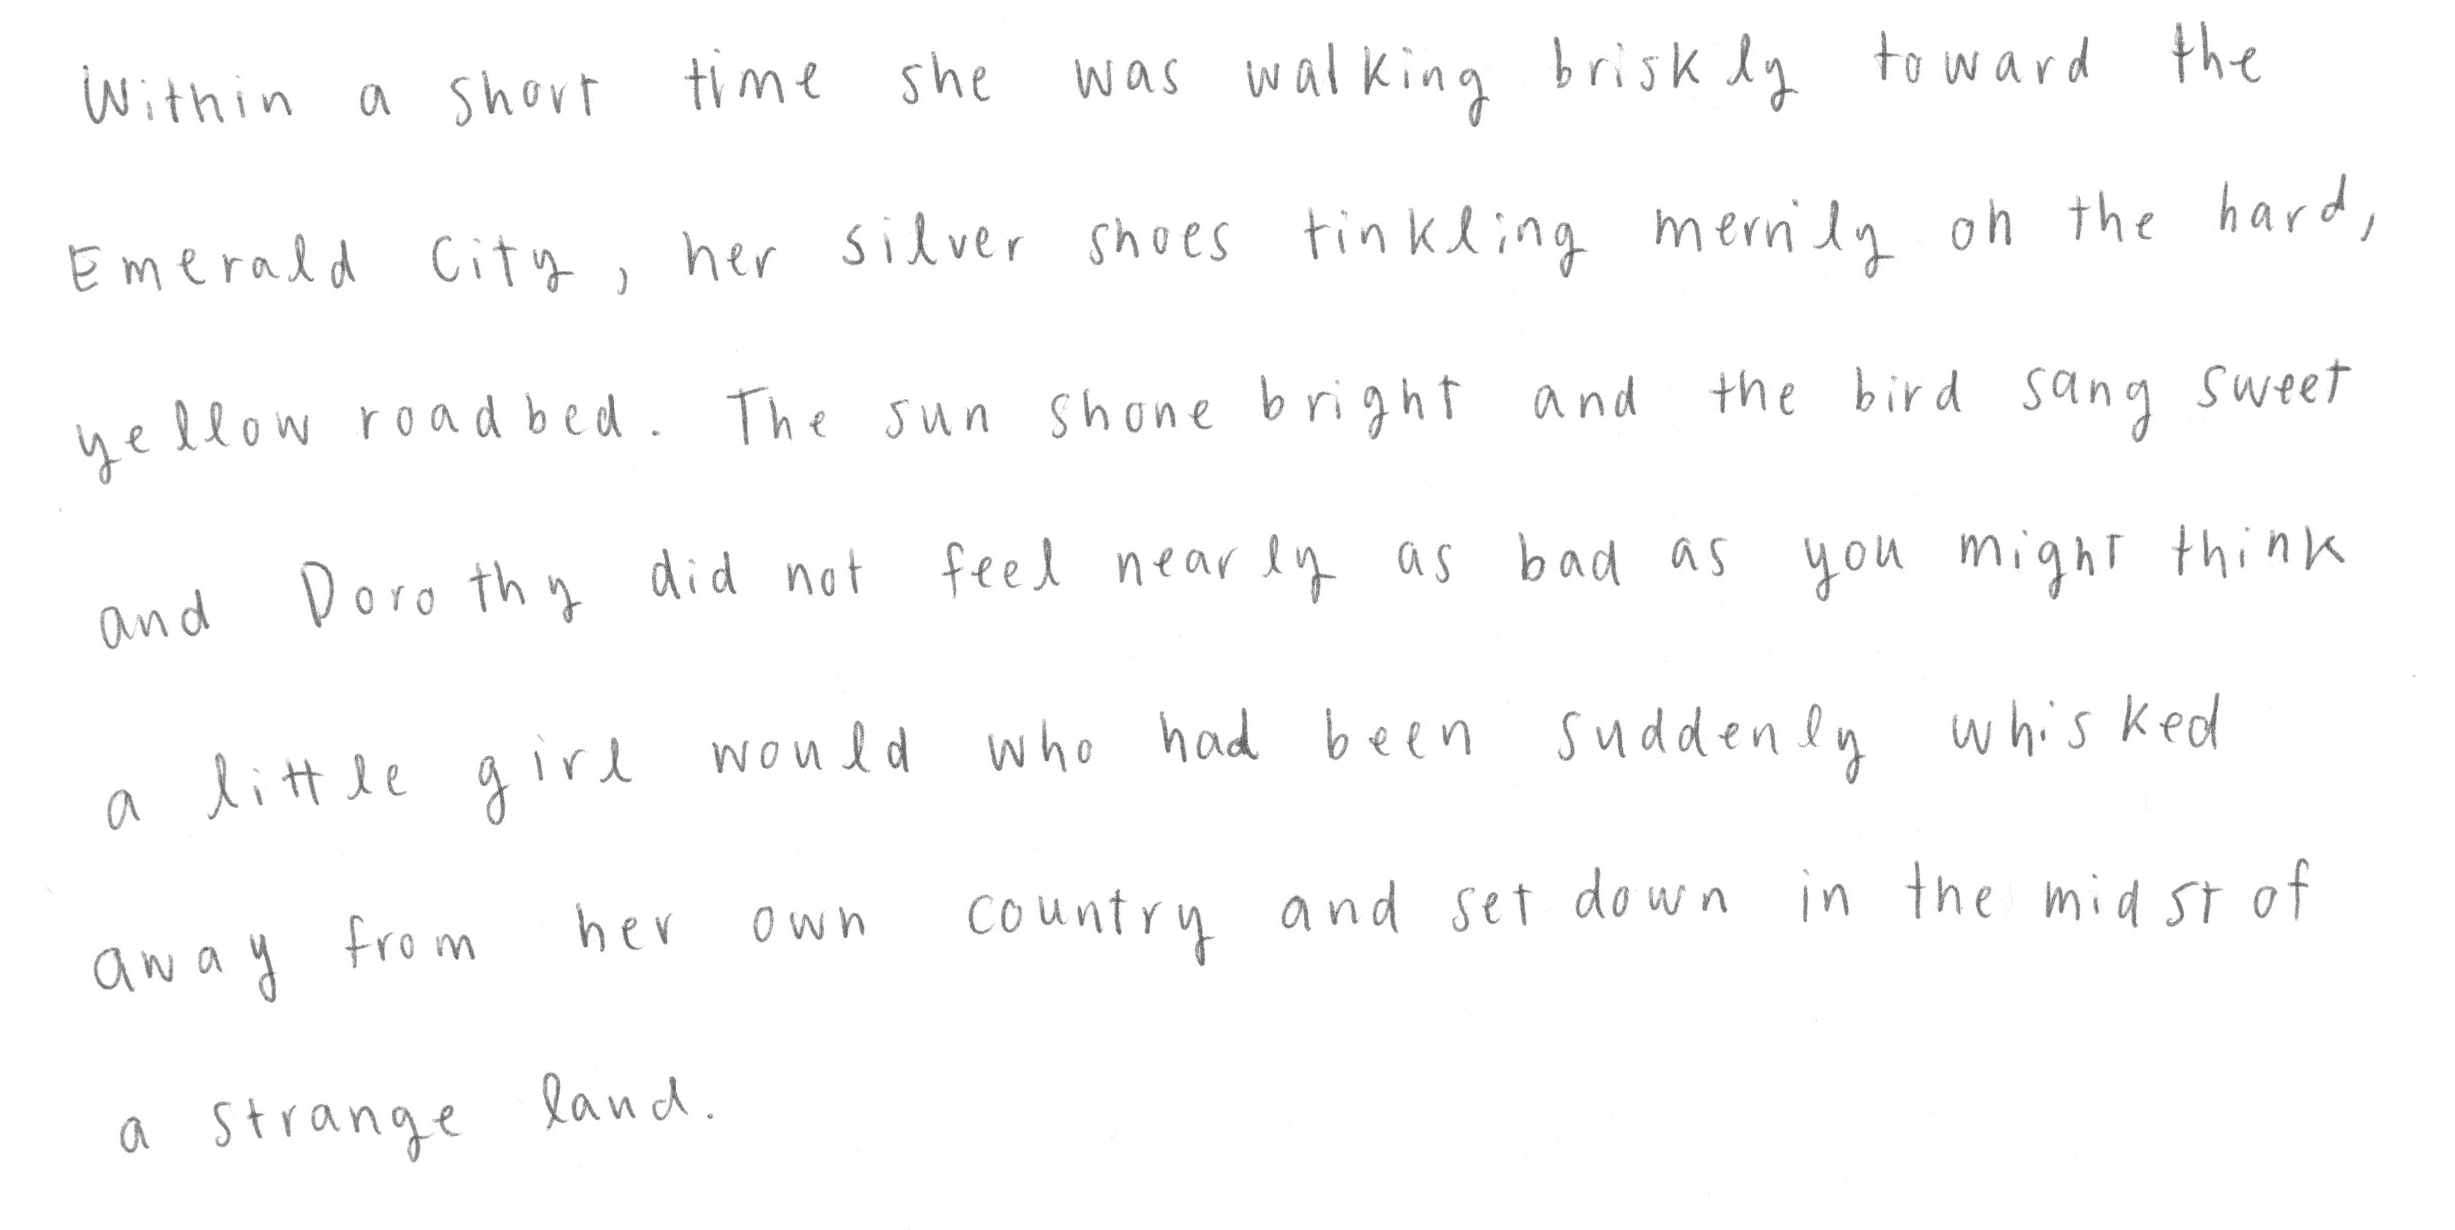 Within a short time she was walking briskly toward the
Emerald City, her silver shoes tinkling merrily on the hard,
yellow roadbed. The sun shone bright and the bird sang sweet
and Dorothy did not feel nearly as bad as you might think
a little girl would who had been suddenly whisked
away from her own country and set down in the midst of
a strange land.